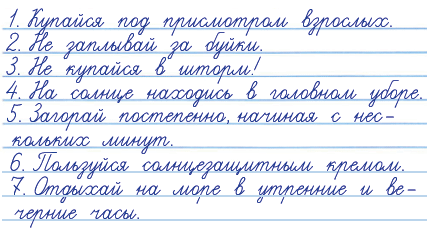 1. Купайся под присмотром взрослых.
2. Не заплывай за буйки.
3. Не купайся в шторм!
4. На солнце находись в головном уборе.
5. Загорай постепенно, начиная с нес-
кольких минут.
6. Пользуйся солнцезащитным кремом.
7. Отдыхай на море в утренние и ве-
черние часы.